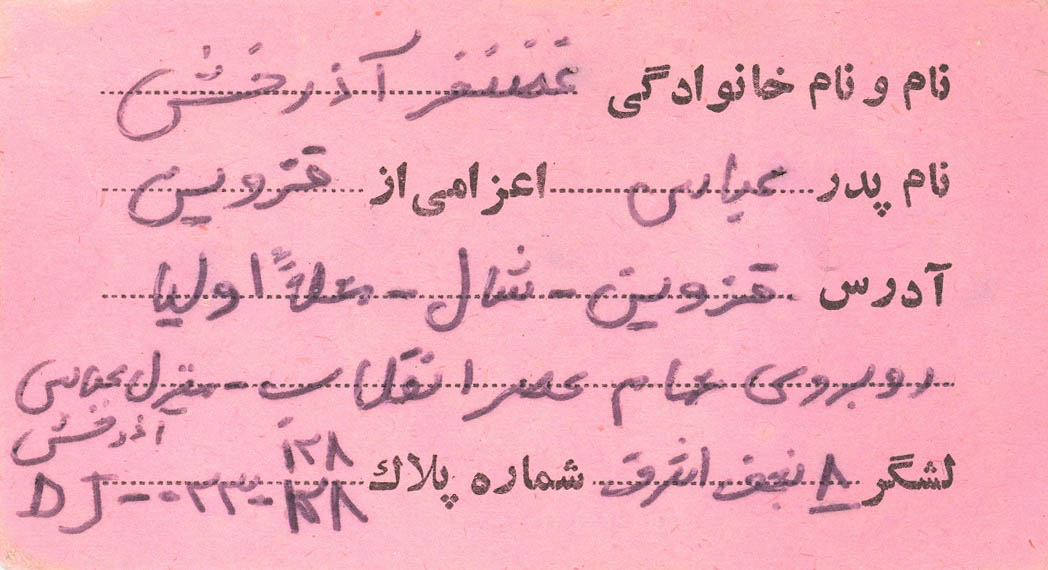 نام و نام خانوادگی غضنفر آذرخش
نام پدر عباس اعزامی از قزوین
آدرس قزوین - شال - محلهٔ اولیا
روبروی حمام عصر انقلاب - منزل عباس
آذرخش
لشگر ۸ نجف اشرف شماره پلاك
DJ - ۰۲۳ -